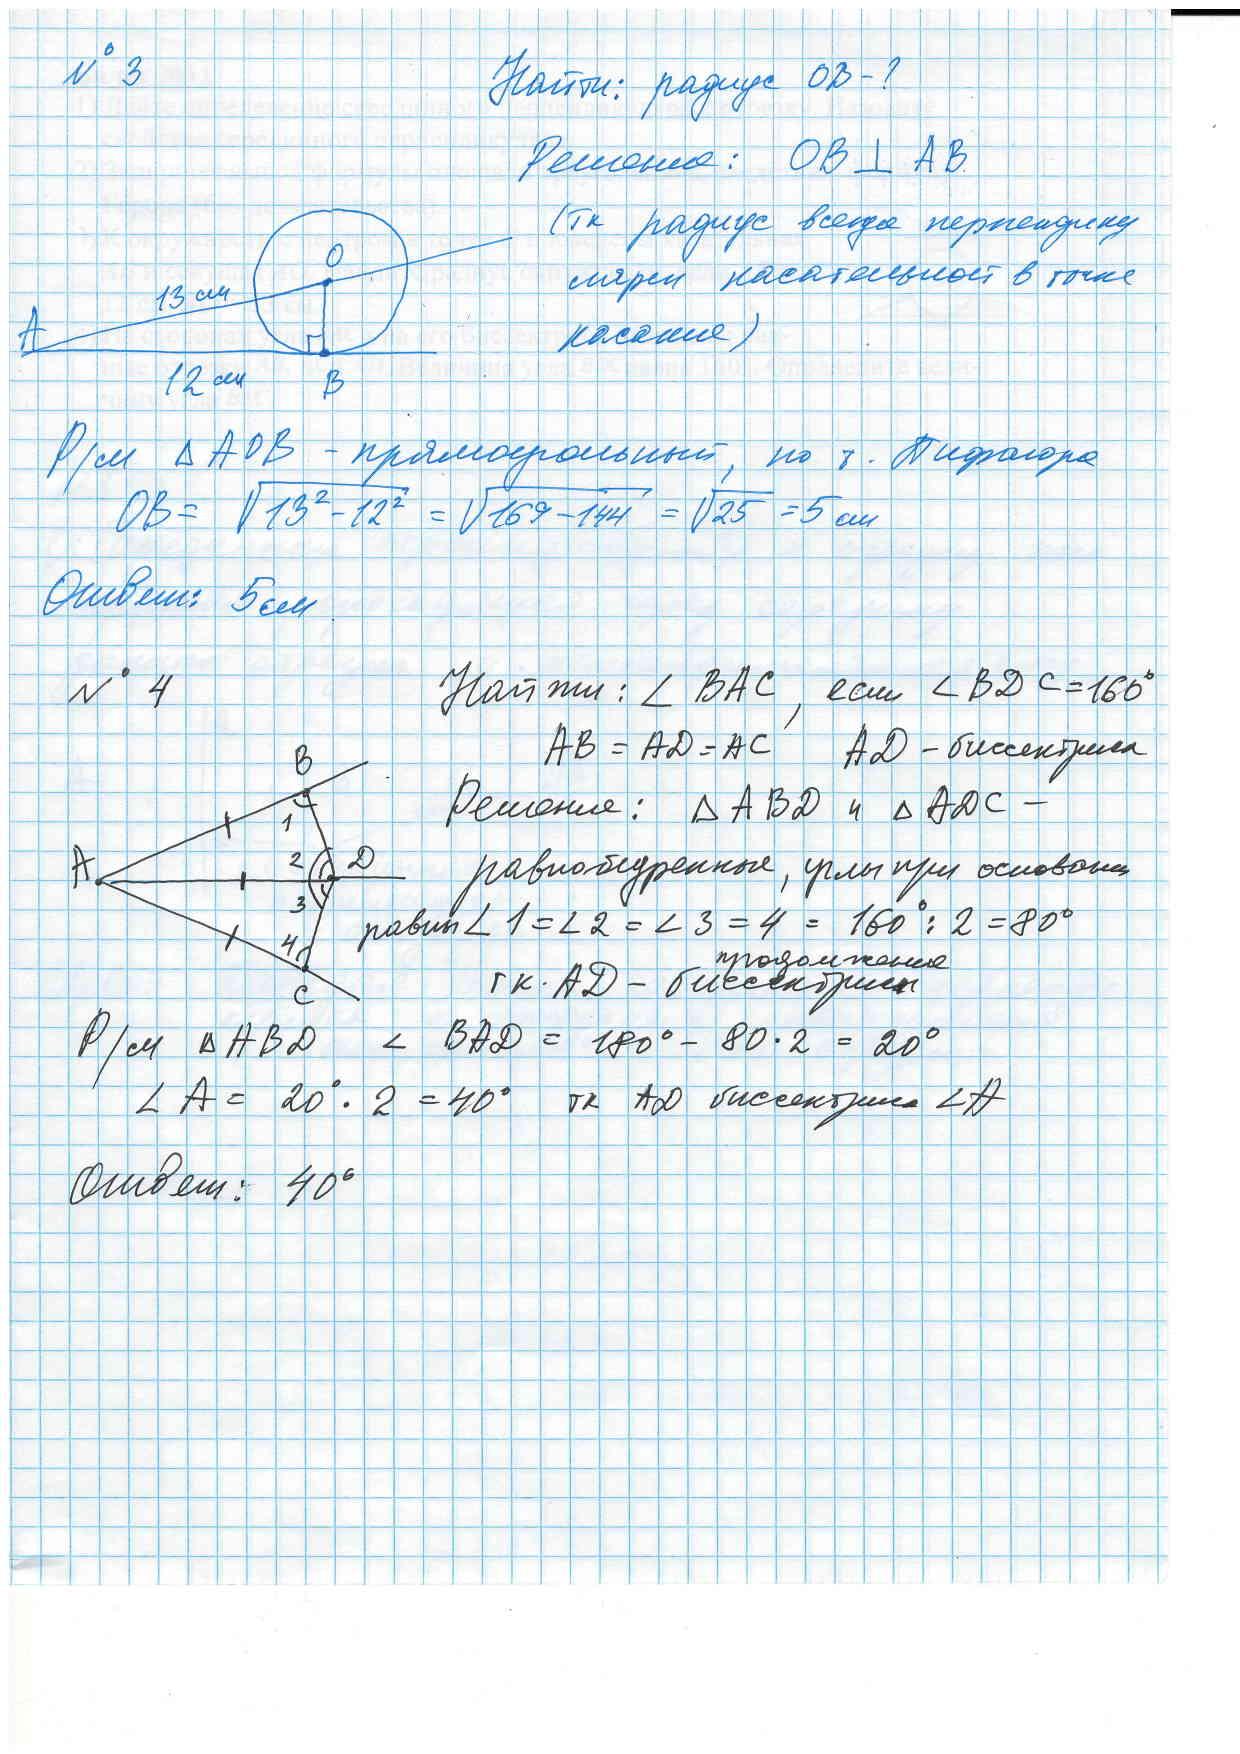 № 3
Найти: радиус OB - ?
Решение: OB ⊥ AB.
(тк радиус всегда перпендику
лярен касательной в точке
касания)
O
13 см
A
12 см
B
Р/м △ AOB - прямоугольный, по т. Пифагора
OB = √13² - 12² = √169 - 144 = √25 = 5 см
Ответ: 5 см
№ 4
Найти: ∠ BAC, если ∠ BDC = 160°
AB = AD = AC AD - биссектриса
Решение: △ ABD и △ ADC -
равнобедренные, углы при основании
равны ∠ 1 = ∠ 2 = ∠ 3 = 4 = 160° : 2 = 80°
продолжение
тк. AD - биссектрисы
B
1
A
2
D
3
4
C
Р/м △ ABD ∠ BAD = 180° - 80 · 2 = 20°
∠ A = 20° · 2 = 40° тк AD биссектриса ∠A
Ответ: 40°